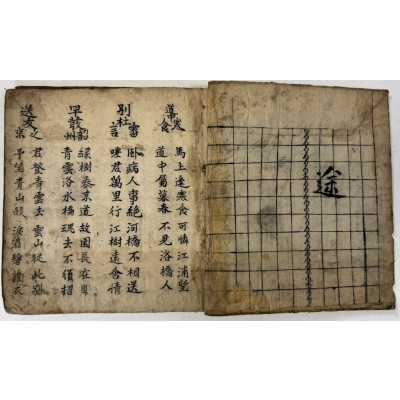 途
道中寒食
馬上逢寒食 可憐江浦望
道中屬暮春 不見洛橋人
別杜審言
臥病人事絕 河橋不相送
嗟君萬里行 江樹遠含情
早發韶州
綠樹秦京道 故園長在目
青雲洛水橋 魂去不須招
送友之京
君登青雲去 雲山從此別
予望青山歸 淚濕薜蘿衣